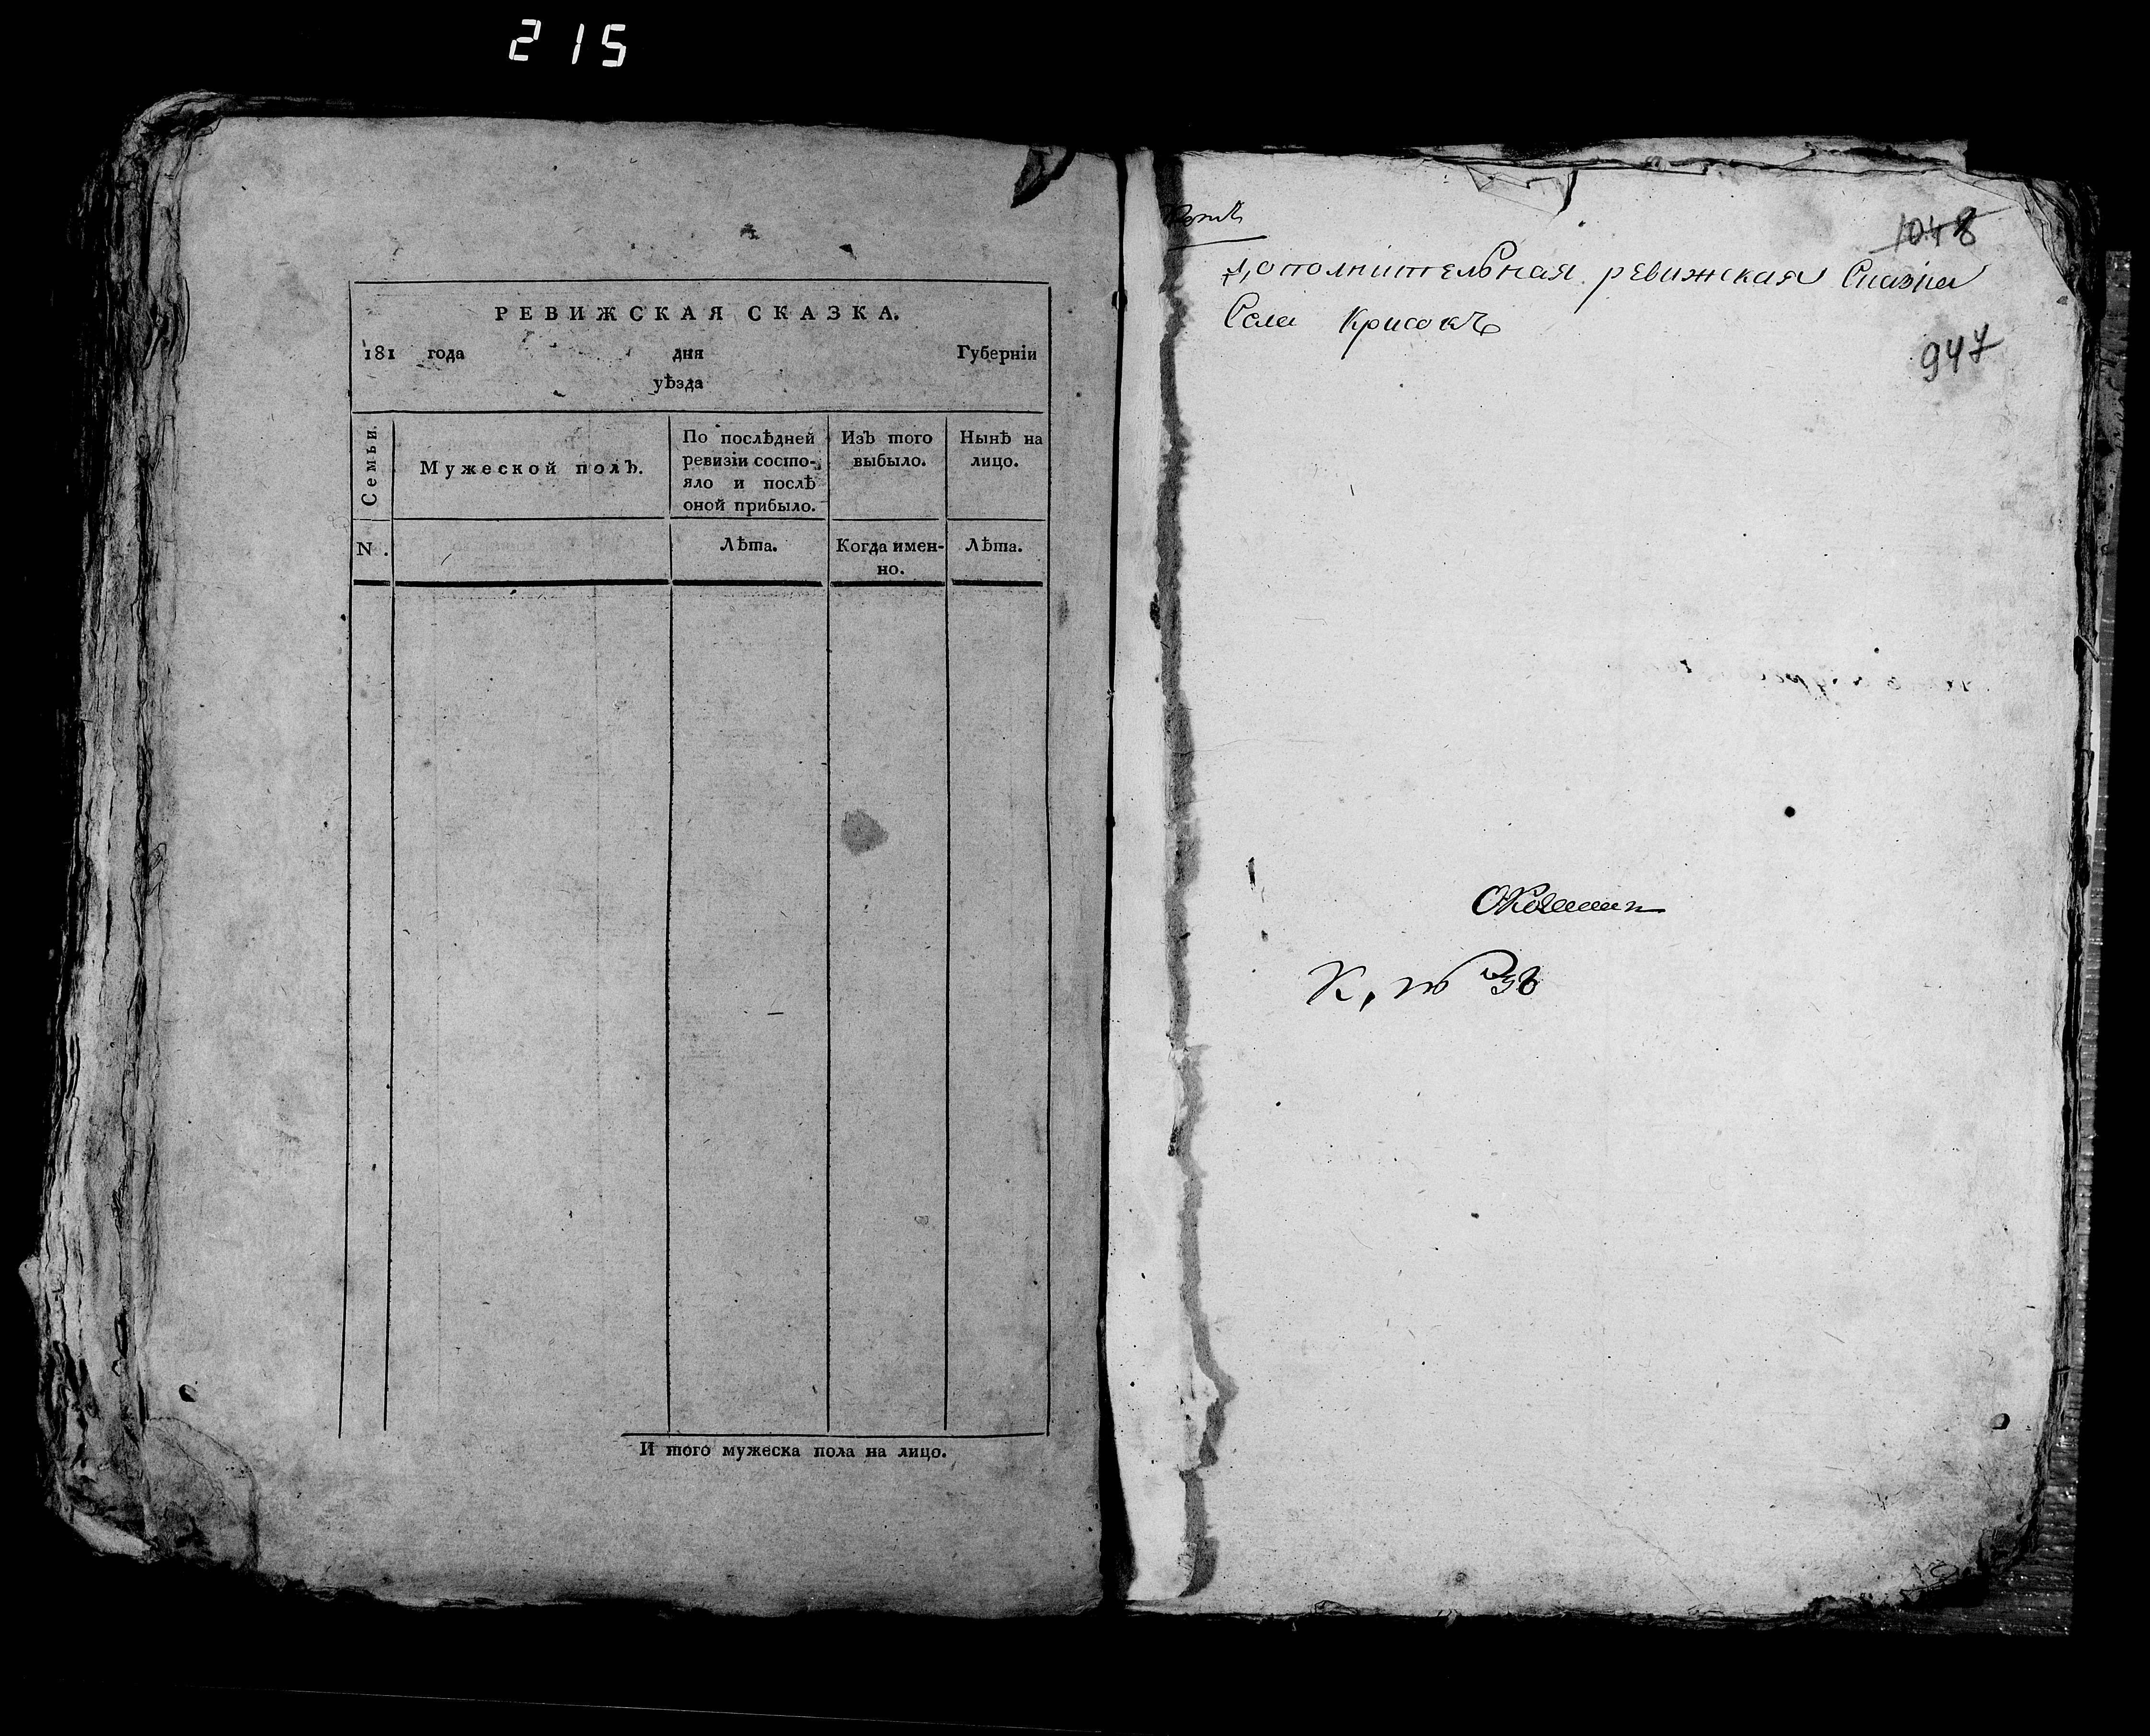 215
РЕВИЖСКАЯ СКАЗКА.
181 года дня Губерніи
уѣзда
Семьи.
Мужеской полъ.
По послѣдней
ревизіи состо-
яло и послѣ
оной прибыло.
Изъ того
выбыло.
Нынѣ на
лицо.
N.
Лѣта.
Когда имен-
но.
Лѣта.
И того мужеска пола на лицо.
1048
Дополнительная ревижская Сказка
Села Крисокъ
947